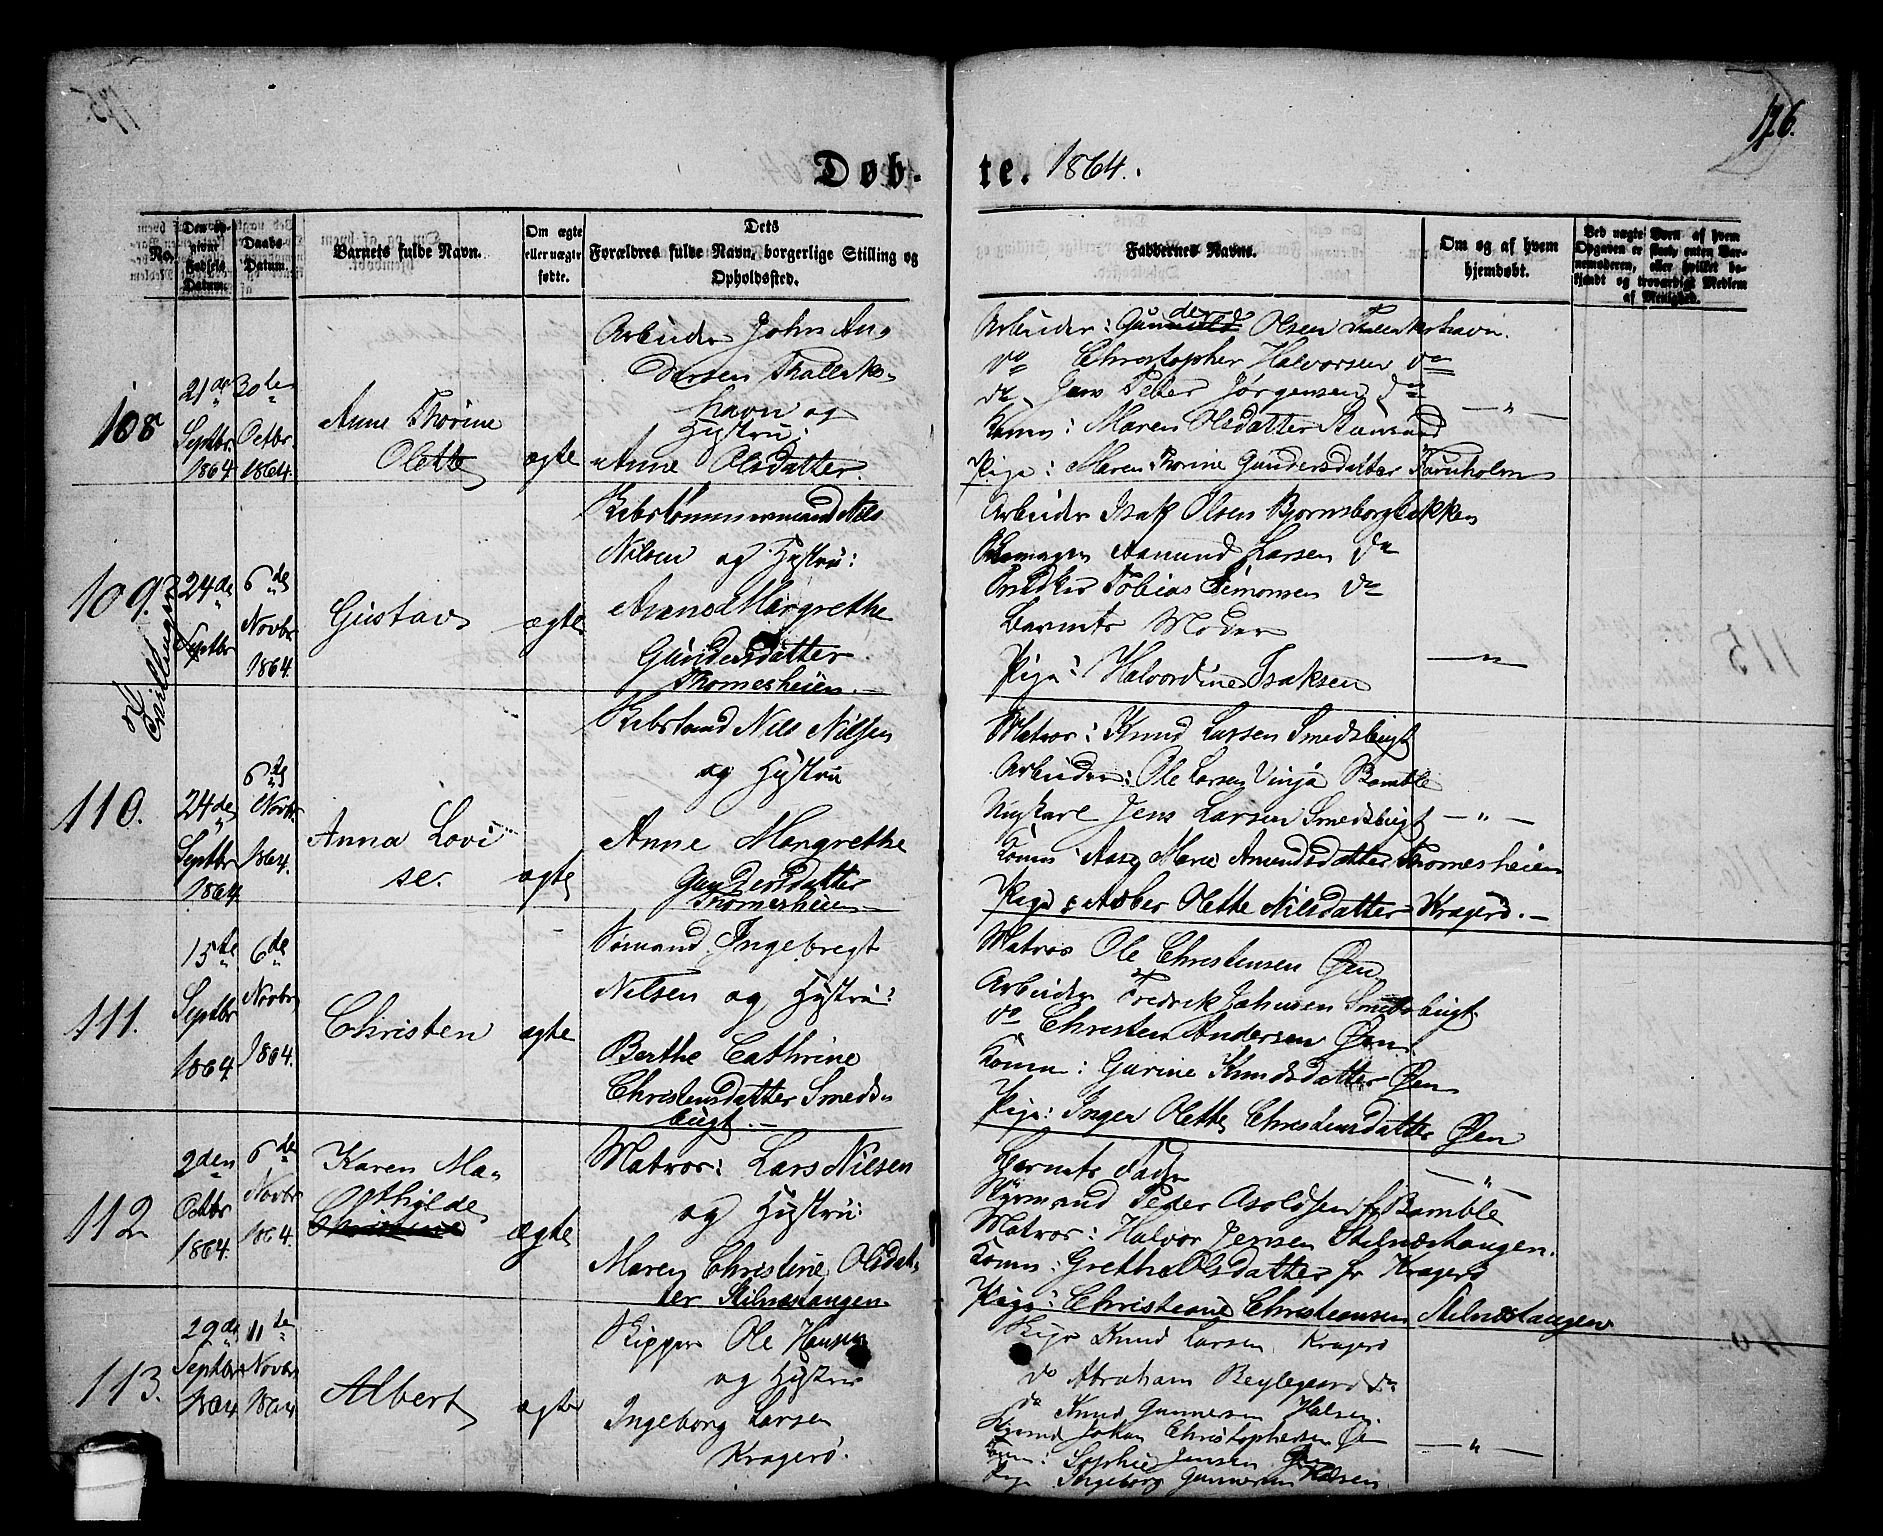 176.
Døb- te. 1864.
No.
Den op-
givne
Fødsels
Datum.
Daabs-
Datum.
Barnets fulde Navn.
Om ægte
eller uægte
fødte.
Dets
Forældres fulde Navn, borgerlige Stilling og
Opholdssted.
Faddernes Navne.
Om og af hvem
hjemdøbt.
Ved uægte Børn af hvem
Opgaven er skeet, enten Bar-
nemoderen, eller hvilket be-
kjendt og troværdigt Medlem
af Menighed.
108
21de
Septbr
1864
30te
Octbr.
1864.
Anne Thorine
Olette
ægte
Arbeider John An-
dersen Thallaks-
havn og
Hustru:
Anne Olsdatter.
Arbeider: Gunder Olsen Thallakshavn.
do Christopher Halvorsen do
do Jens Peter Jørgensen do
Konen: Maren Olsdatter
Pige: Maren Thorine Gundersdatter Furuholm
— " —
109.
Tvillinger
24de
Septbr
6de
Novbr
1864.
Gustav
ægte
Nilsen og Hustru:
Margrethe
Gundersdatter
Thomesheien.
Arbeider Isak Olsen Bjørnsborgbakken
Aamund Larsen do
Tobias Simonsen do
Barnets Moder
Pige: Halvordine Isaksen
— " —
110.
24de
Septbr
1864
6te
Novbr.
1864.
Anna Lovi
se.
ægte
Nils Nilsen
og Hustru
Anne Margrethe
Gundersdatter
Thomesheien
Matros: Knud Larsen Smedsbugt
Arbeider: Ole Larsen Vinja Bamble
Ungkare Jens Larsen Smedsbugt — " —
Konen Aase Marie Amundsdatter Thomesheien
Pige: Olette Nilsdatter Kragerø.
111.
15te
Septbr
1864
6de
Novbr
1864.
Christen
ægte
Sømand Ingebregt
Nilsen og Hustru:
Berthe Cathrine
Christensdatter Smeds-
bugt.
Matros Ole Christensen Øen
Arbeider Fredrik Johnsen Smedsbugt
do Christen Andersen Øen
Konen: Gurine Knudsdatter Øen
Pige: Inger Olette Christensdatter Øen
112
2den
Octbr
1864.
6de
Novbr
1864.
Karen Ma-
thilde
Christine
ægte
Matros: Lars Nilsen
og Hustru:
Maren Christine Olsdat-
ter Stilnæstangen.
Barnets Fader
Styrmand Peder Asoldsen fr Bamble
Matros: Halvor Jensen Stilnæstangen.
Konen: Grethe Olsdatter fr Kragerø
Pige: Christiane Christiansen Stilnæstangen
— " —
113.
29de
Septbr
1864
11te
Novbr
1864
Albert
ægte
Skipper Ole Hansen
og Hustru
Ingeborg Larsen
Kragerø.
Knud Larsen Kragerø
do Abraham Beylegaard do
do Knud Gunnersen Halsen.
Johan Christophersen Øen
Sophie Jensen
Pige Ingeborg Gunnersen Halsen
— " —